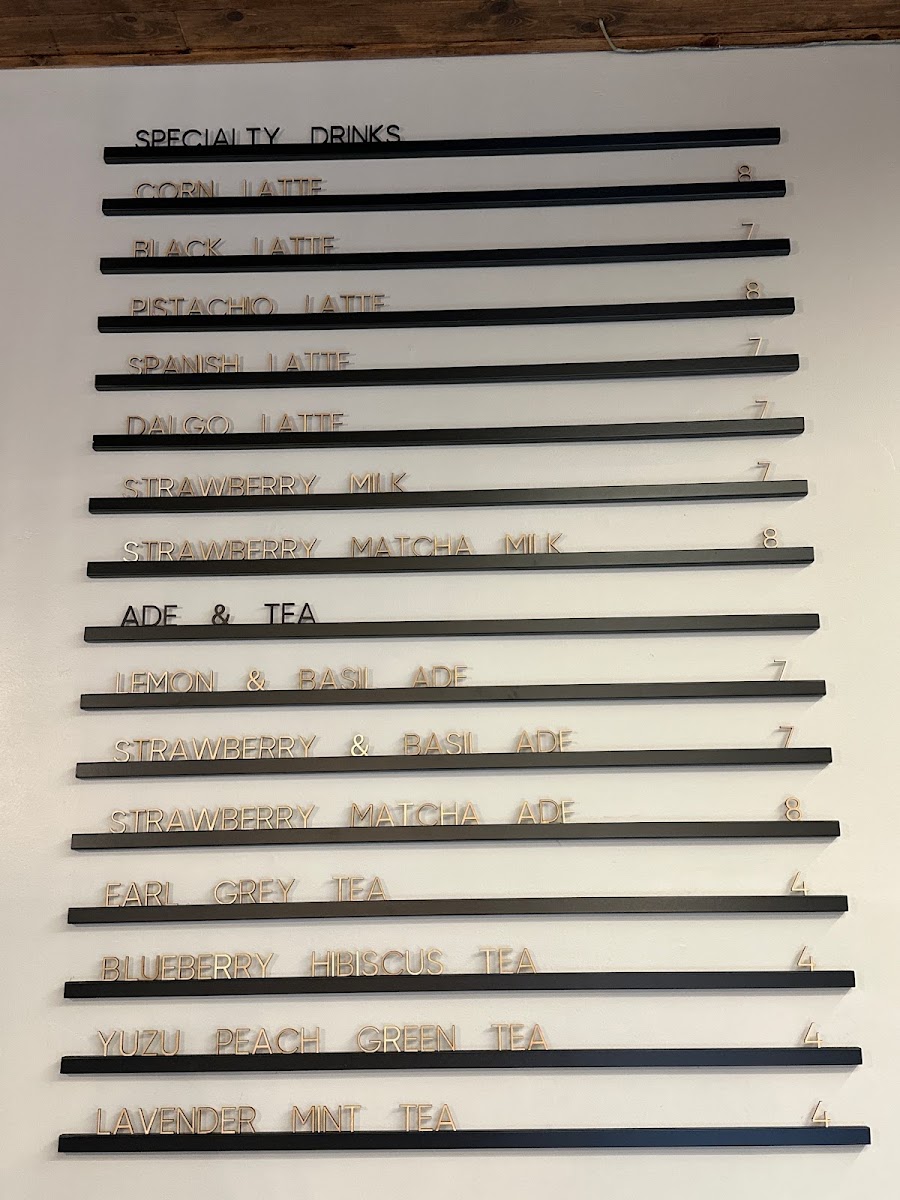 SPECIALTY DRINKS
CORN LATTE 8
BLACK LATTE 7
PISTACHIO LATTE 8
SPANISH LATTE 7
DALGO LATTE 7
STRAWBERRY MILK 7
STRAWBERRY MATCHA MILK 8
ADE & TEA
LEMON & BASIL ADE 7
STRAWBERRY & BASIL ADE 7
STRAWBERRY MATCHA ADE 8
EARL GREY TEA 4
BLUEBERRY HIBISCUS TEA 4
YUZU PEACH GREEN TEA 4
LAVENDER MINT TEA 4